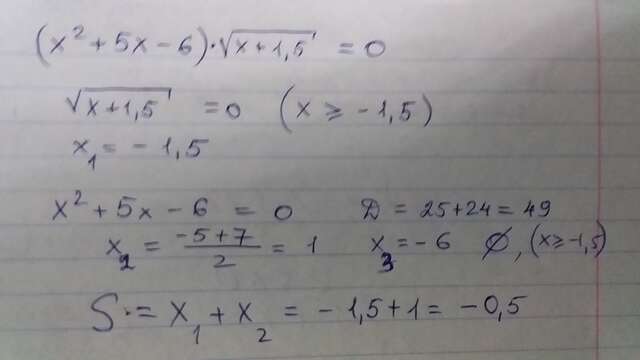 (x² + 5x - 6) · √(x + 1,5) = 0
√(x + 1,5) = 0 (x ⩾ - 1,5)
x₁ = - 1,5
x² + 5x - 6 = 0 D = 25 + 24 = 49
x₂ = (-5 + 7)/2 = 1 x₃ = - 6 ∅, (x ⩾ -1,5)
S = x₁ + x₂ = - 1,5 + 1 = - 0,5